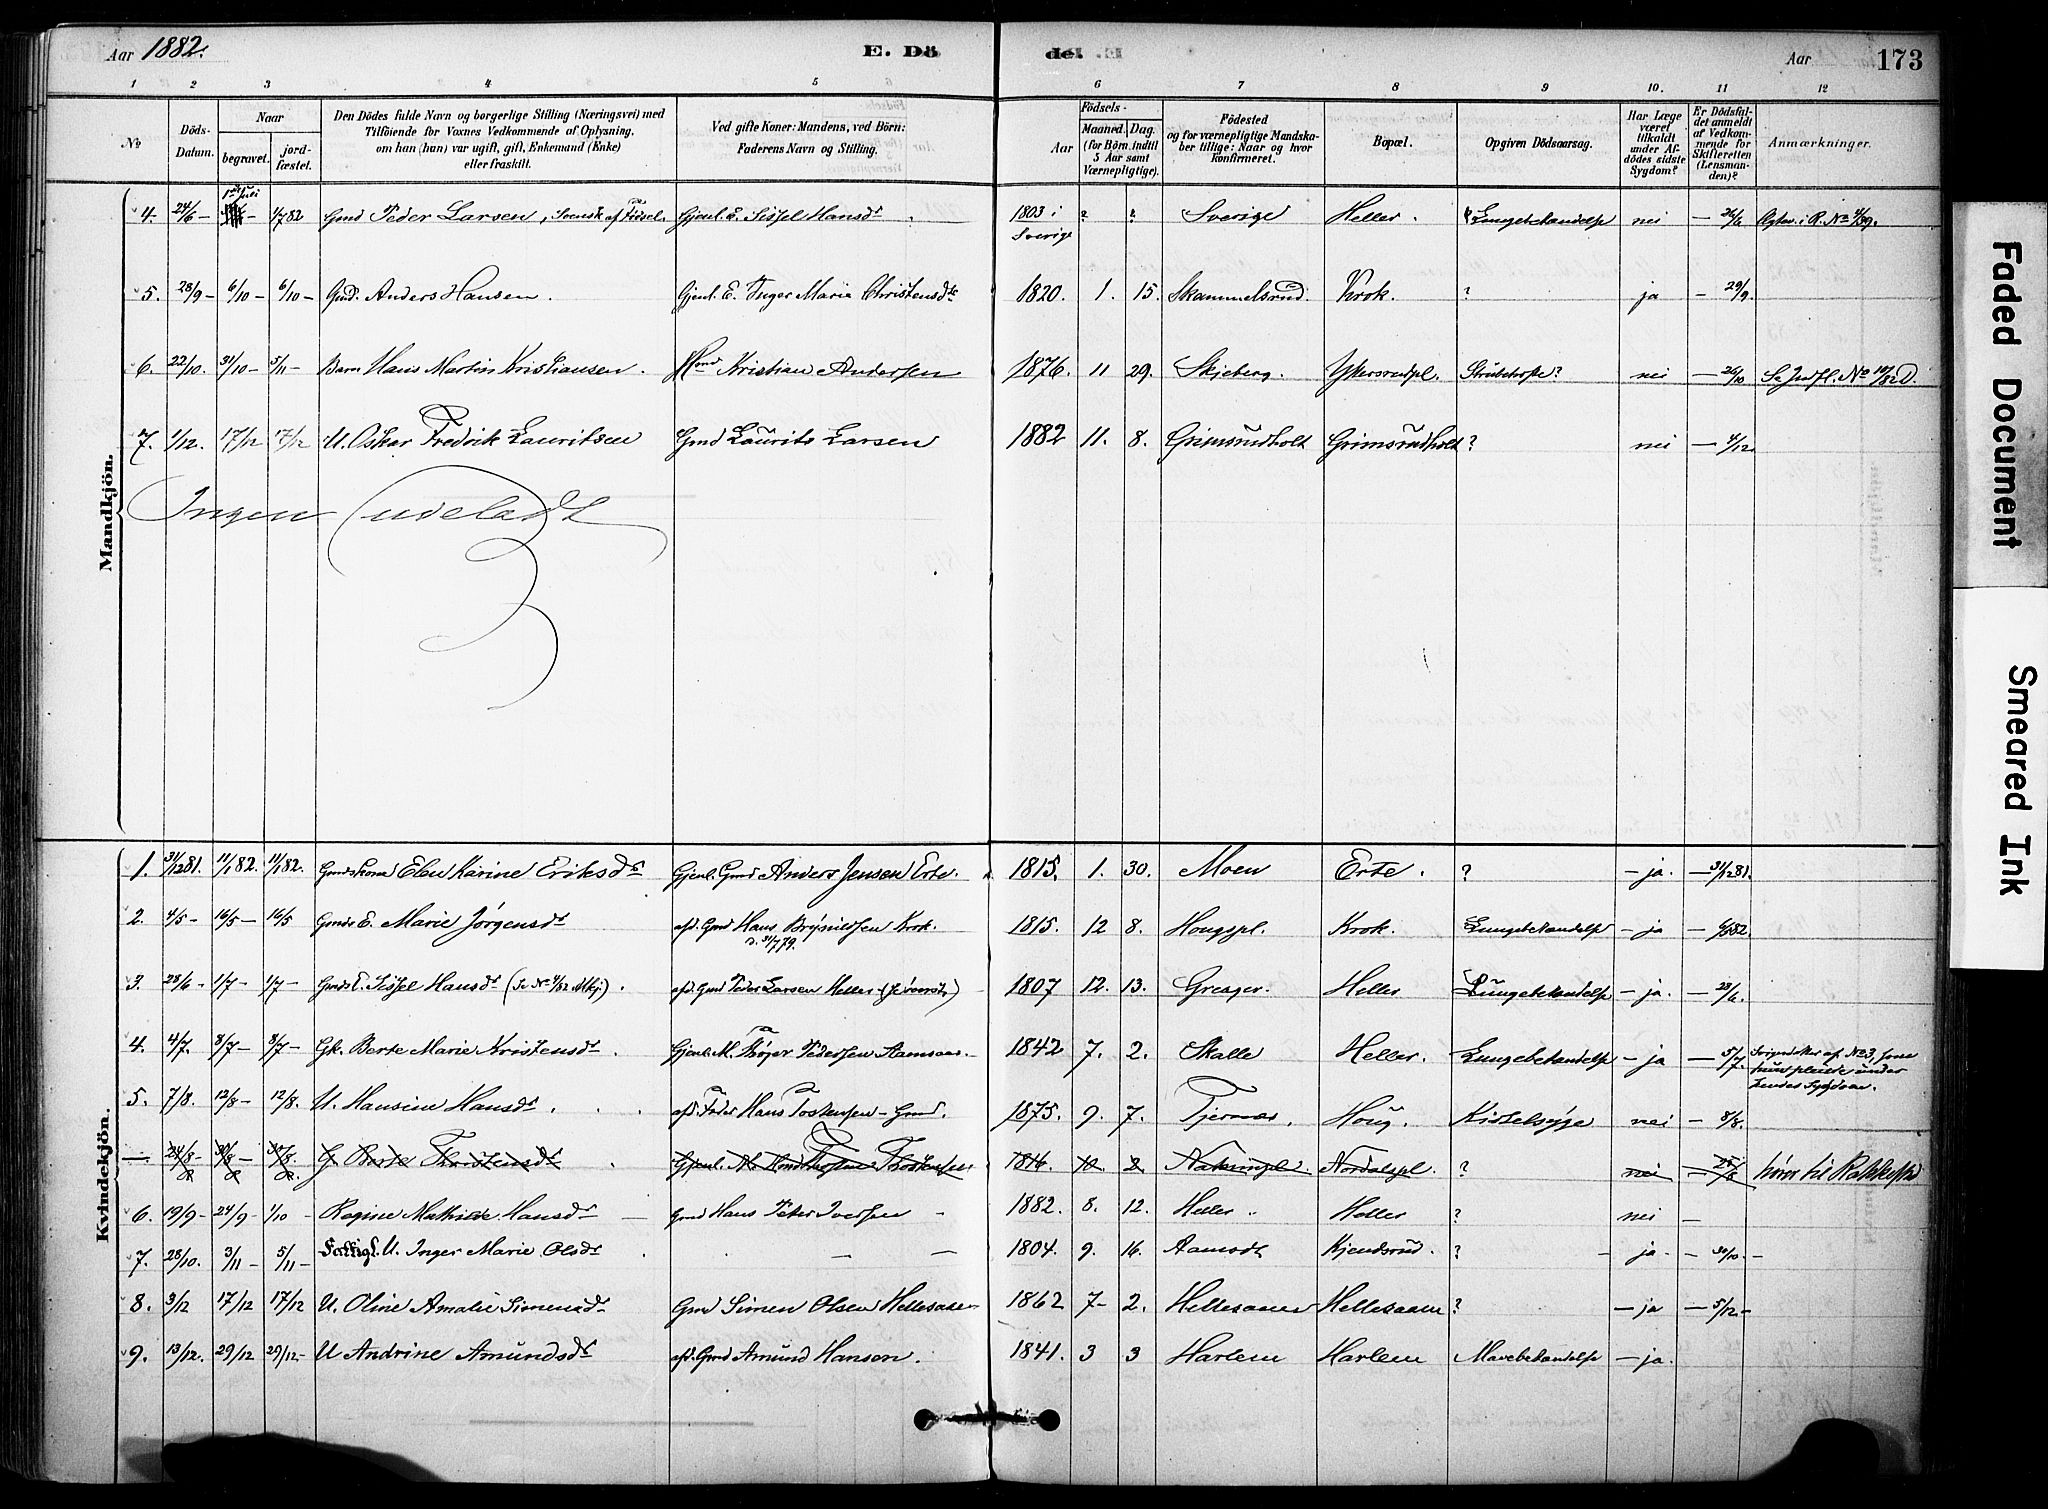 Aar 1882. E. Dö de. Aar 173
1 2 3 4 5 6 7 8 9 10. 11 12
No
Döds-Datum.
Naar
begravet.
jord-fæstet.
Den Dödes fulde Navn og borgerlige Stilling (Næringsvei) med
Tilföiende for Voxnes Vedkommende af Oplysning,
om han (hun) var ugift, gift, Enkemand (Enke)
eller fraskilt.
Ved gifte Koner: Mandens, ved Börn:
Faderens Navn og Stilling.
Födsels-
Aar
Maaned. Dag.
(for Börn indtil
5 Aar samt
Værnepligtige).
Födested
og for værnepligtige Mandska-
ber tillige: Naar og hvor
konfirmeret.
Bopæl.
Opgiven Dödsaarsag.
Har Læge
været
tilkaldt
under Af-
dödes sidste
Sygdom?
Er Dödsfal-
det anmeldt
af Vedkom-
mende for
Skifteretten
(Lensman-
den)?
Anmærkninger.
Mandkjön.
4. 24/6 - 1/7 82 Gmd Peder Larsen, Svensk af Fødsel. Gjenl. E. Sissel Hansdr. 1803 i Sverige ? ? Sverige Heller. Lungebetændelse nei - 26/6
5. 28/9 - 6/10 - 6/10 - Gmd. Anders Hansen. Gjenl. E. Inger Marie Christensdr 1820. 1. 15. Skammelsrud. Krok. ? ja - 29/9.
6. 22/10. 31/10 - 5/11 - Barn Hans Martin Kristiansen. Kristian Andersen 1876. 11 29. Skjeberg. Strubehoste? nei - 26/10 Se Indfl. No 10/82 D.
7. 1/12. 17/12 17/12 U. Oskar Fredrik Lauritsen Gmd Laurits Larsen 1882 11. 8. Grimsrudholt Grimsrudholt ? nei - 4/12.
Ingen udeladt
Kvindekjön.
1. 31/12 81. 11/1 82. 11/1 82. Gmdskone Elen Karine Eriksdr Gjenl. Gmd Anders Jensen Erte. 1815. 1. 30. Moen Erte. ? - ja. - 31/12 81.
2. 4/5 - 16/5 - 16/5 Gmds E. Marie Jørgensdr afd. Gmd Hans Brynildsen Krok. D. 31/7 79. 1815. 12 8. Hougspl. Krok. Lungebetændelse - ja - 6/5 82.
3. 28/6 - 1/7 - 1/7 - Gmds E. Sissel Hansdr (Se No 4/82 Mkj.). afd. Gmd Peder Larsen Heller 1807 12. 13. Greager. Heller Lungebetændelse - ja. - 28/6.
4. 4/7. 8/7 - 8/7 - Gk. Berte Marie Kristensdr. Gjenl. M. Børger Pedersen 1842 7. 2. Skalle Heller. Lungebetændelse - ja - 5/7. Svigerdatter af No 3, som
hun pleiede under
hendes Sygdom.
5. 7/8. 12/8 - 12/8. U. Hansine Hansdr. afd. Fader Hans Tostensen - Gmd. 1875. 9. 7. Tjernes. Houg. Kirtelsyge nei - 8/8.
- 24/8 - 30/8 - 30/8. G. Berte Thorstensdr. 1816. 10. 2 Nordalspl. ? nei - hører til Rakkestad
6. 19/9 - 24/9 - 1/10 - Regine Mathilde Hansdr - Gmd Hans Peter Iversen - 1882. 8. 12. Heller. Heller ? nei -
7. 28/10. 3/11 - 5/11 - Fattigl. U. Inger Marie Olsdr. - - - 1804. 9. 16. Aamodt Kjendsrud. ? - ja - - 30/10. -
8. 3/12 17/12 17/12 U. Oline Amalie Simensdr Gmd Simen Olsen Hellesaaen 1862 7 - 2. Hellesaaen Hellesaaen ? - ja - 5/12 -
9. 13/12. 29/12 29/12 - U Andrine Amundsdr afd. Gmd Amund Hansen. 1841. 3 3 Harlem Harlem Mavebetændelse - ja.
Faded Document
Smeared Ink